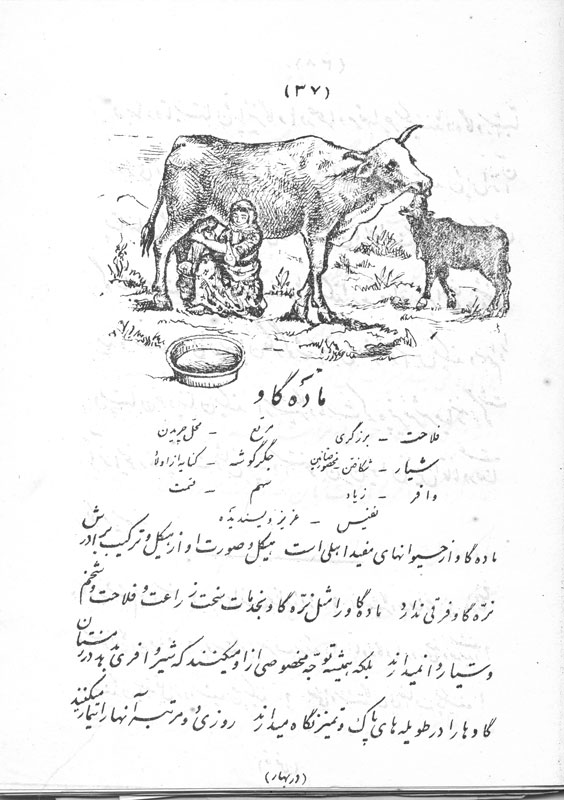 (۳۷)
ماده گاو
فلاحت – برزگری مرتع – محل چریدن
شیار – شکافتن مخصوص زمین جگرگوشه – کنایه از اولاد
وافر – زیاد سهم – قسمت
نفیس – عزیز و پسندیده
ماده گاو از حیوانهای مفید اهلی است هیکل و صورت او از هیکل و ترکیب برادرش
نره گاو فرقی ندارد ماده گاو را مثل نره گاو بخدمات سخت زراعت و فلاحت و شخم
و شیار وانمیدارند بلکه همیشه توجه مخصوصی از او میکنند که شیر وافری بدهد در زمستان
گاوها را در طویله های پاک و تمیز نگاه میدارند روزی دو مرتبه آنها را تیمار میکنند
(در بهار)